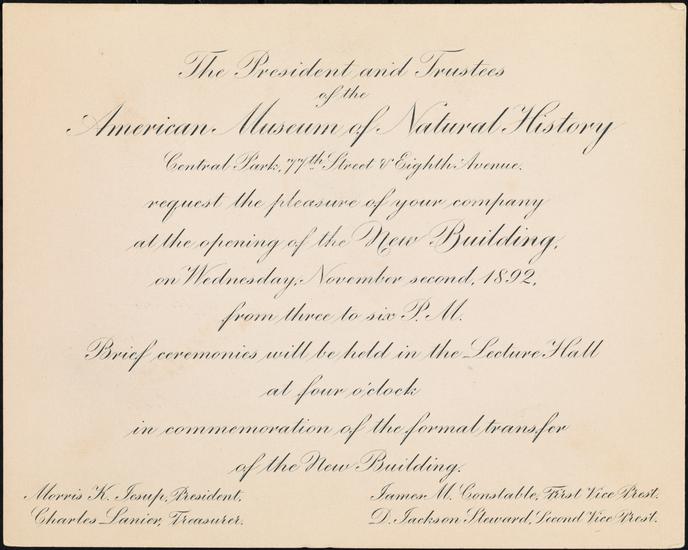 The President and Trustees
of the
American Museum of Natural History
Central Park, 77th Street & Eighth Avenue.
request the pleasure of your company
at the opening of the New Building,
on Wednesday, November second, 1892,
from three to six P.M.
Brief ceremonies will be held in the Lecture Hall
at four o'clock
in commemoration of the formal transfer
of the New Building.
Morris K. Jesup, President,
Charles Lanier, Treasurer.
James M. Constable, First Vice Prest.
D. Jackson Steward, Second Vice Prest.